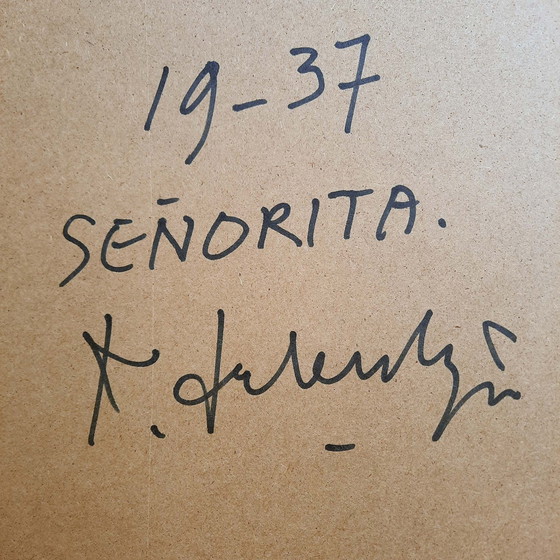 19-37
SEÑORITA.